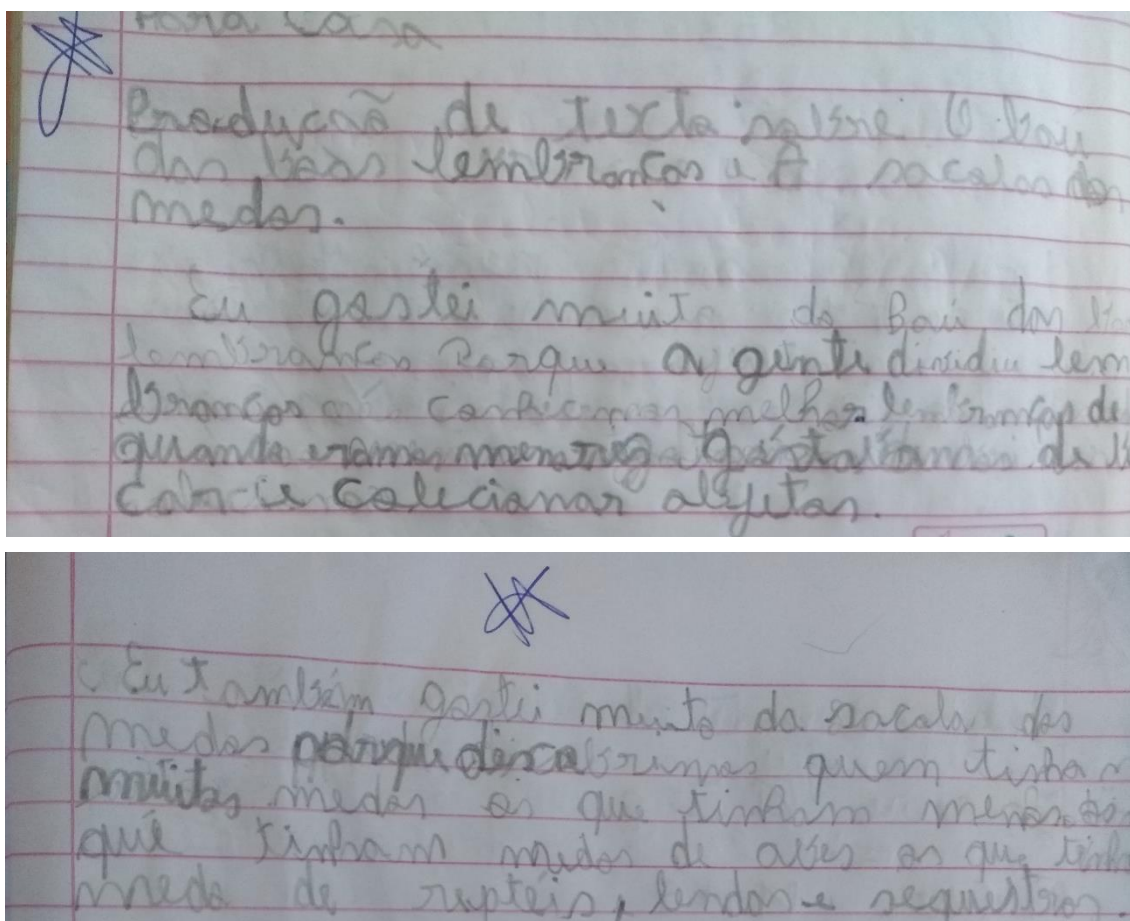 Para Casa
Produção de texto sobre O bau
das boas lembranças e A sacola dos
medos.
Eu gostei muito do Baú das
lembranças Porque a gente dividiu lem
branças melhor lembranças de
quando eramos menores de
e colecionar objetos.
Eu também gostei muito da sacola dos
medos porque descobrimos quem tinha
muitos medos os que tinham menos
que tinham medos de aves os que tinha
medo de repteis, lendas e sequestros.